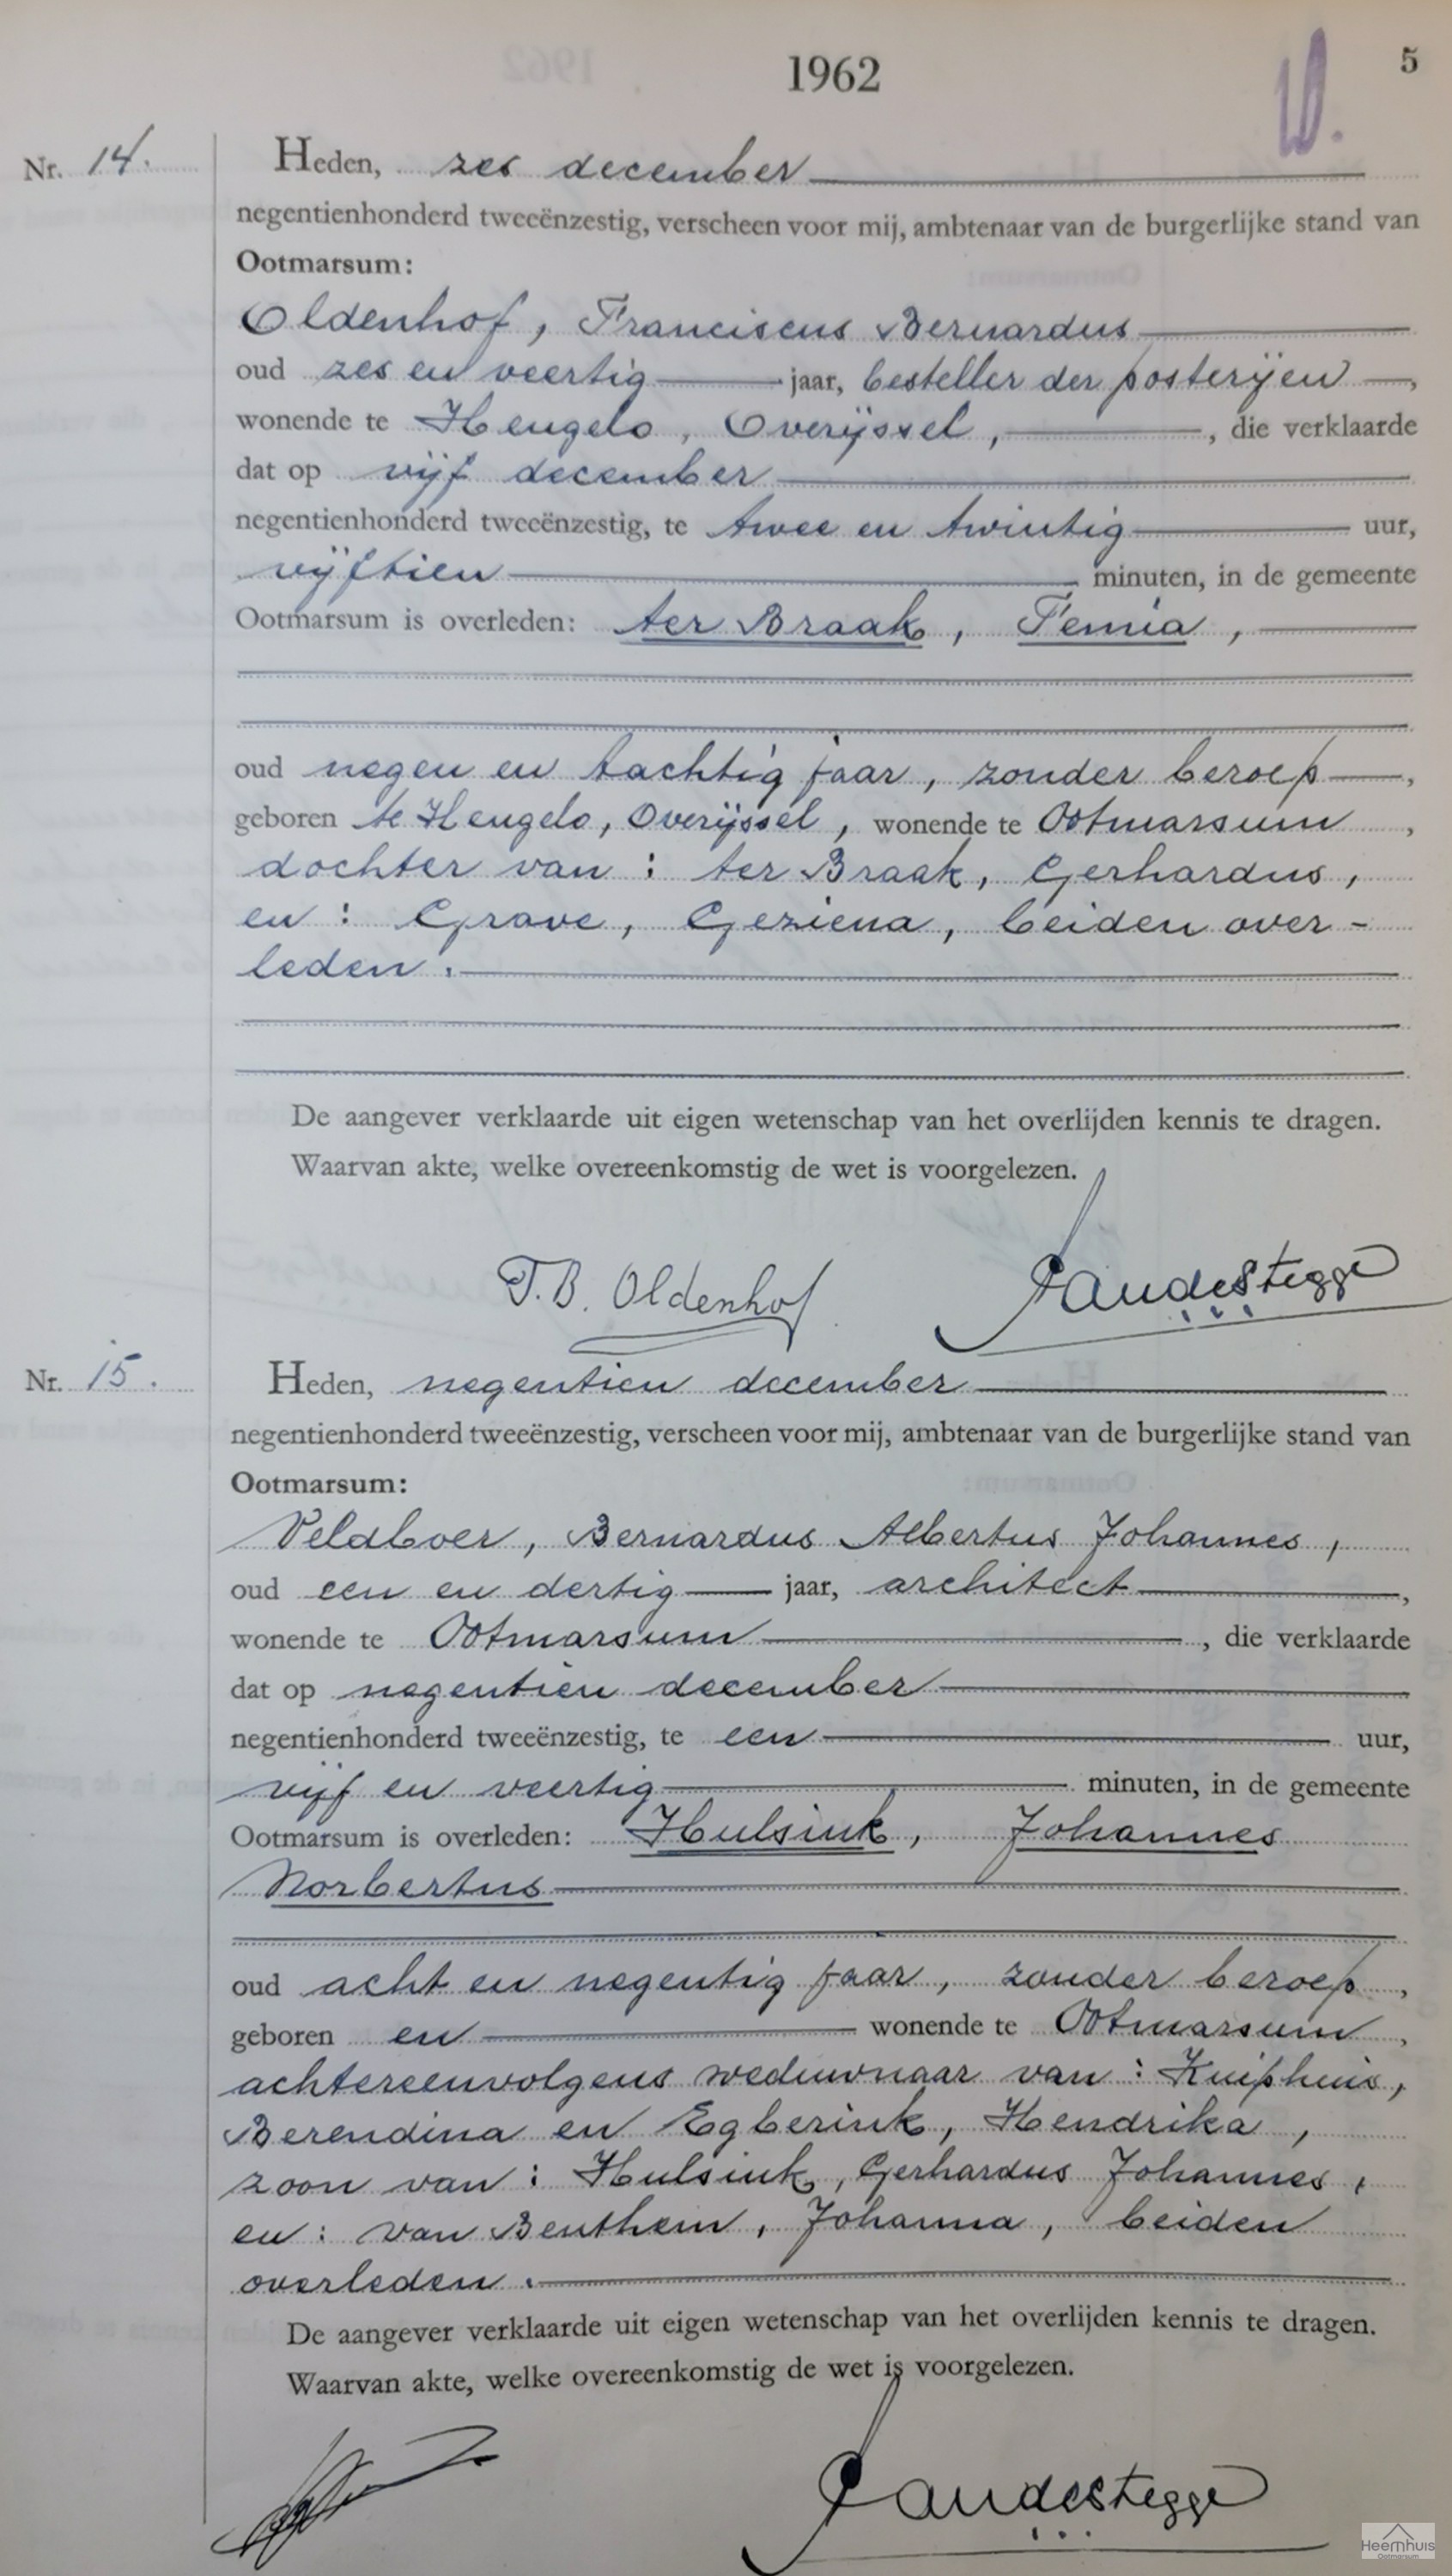 1962
5
Nr. 14.
Heden, zes december
negentienhonderd tweeënzestig, verscheen voor mij, ambtenaar van de burgerlijke stand van
Ootmarsum:
Oldenhof, Franciscus Bernardus
oud zes en veertig jaar, besteller der posterijen,
wonende te Hengelo, Overijssel, , die verklaarde
dat op vijf december
negentienhonderd tweeënzestig, te twee en twintig uur,
vijftien minuten, in de gemeente
Ootmarsum is overleden: ter Braak, Femia,
oud negen en tachtig jaar, zonder beroep,
geboren te Hengelo, Overijssel, wonende te Ootmarsum,
dochter van: ter Braak, Gerhardus,
en: Grave, Geziena, beiden over-
leden.
De aangever verklaarde uit eigen wetenschap van het overlijden kennis te dragen.
Waarvan akte, welke overeenkomstig de wet is voorgelezen.
F.B. Oldenhof
Nr. 15.
Heden, negentien december
negentienhonderd tweeënzestig, verscheen voor mij, ambtenaar van de burgerlijke stand van
Ootmarsum:
Veldboer, Bernardus Albertus Johannes,
oud een en dertig jaar, architect,
wonende te Ootmarsum, die verklaarde
dat op negentien december
negentienhonderd tweeënzestig, te een uur,
vijf en veertig minuten, in de gemeente
Ootmarsum is overleden: Hulsink, Johannes
Norbertus
oud acht en negentig jaar, zonder beroep,
geboren en wonende te Ootmarsum,
achtereenvolgens weduwnaar van: Kuiphuis,
Berendina en Egberink, Hendrika,
zoon van: Hulsink, Gerhardus Johannes,
en: van Benthem, Johanna, beiden
overleden.
De aangever verklaarde uit eigen wetenschap van het overlijden kennis te dragen.
Waarvan akte, welke overeenkomstig de wet is voorgelezen.
Heemhuis
Ootmarsum